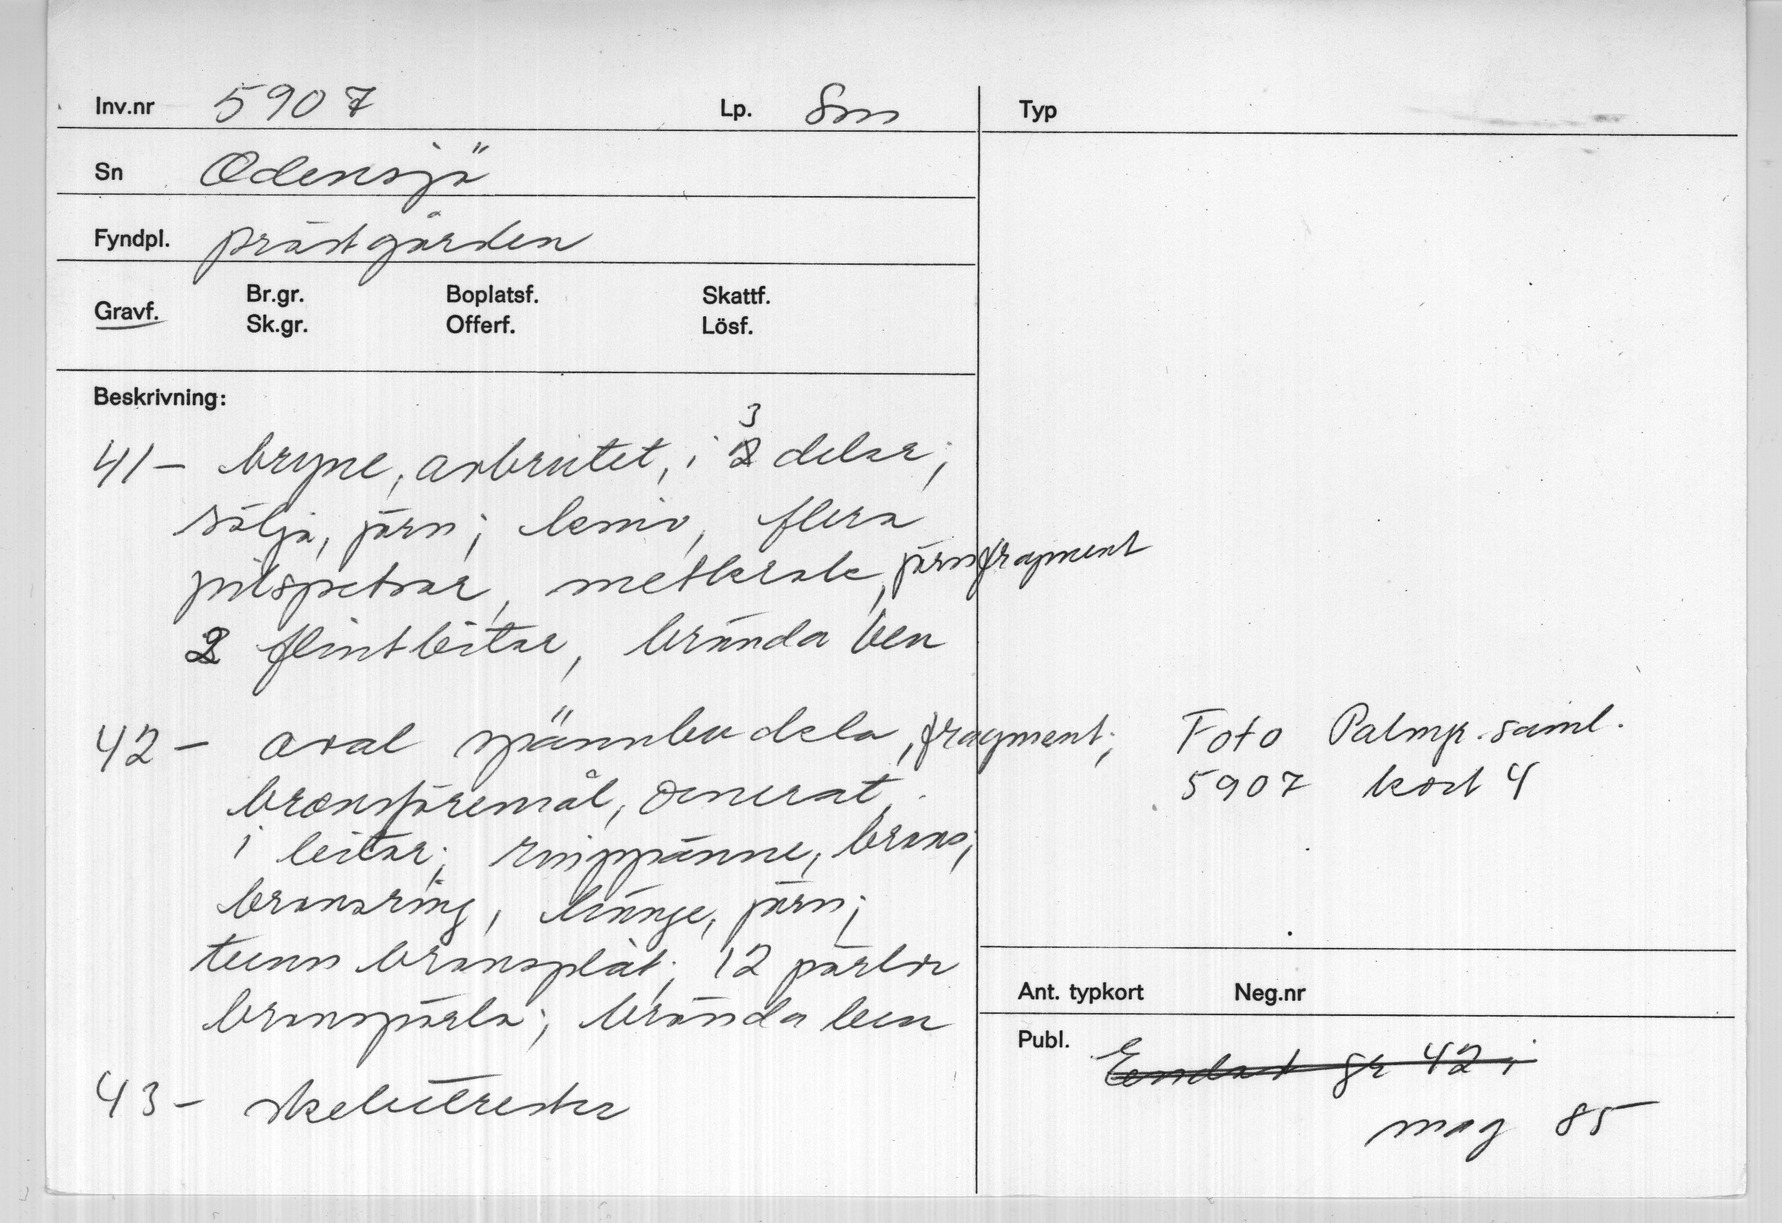 Inv.nr 5907 Lp. Sm
Sn Odensjö
Fyndpl. prästgården
Gravf. Br.gr. Boplatsf. Skattf.
Sk.gr. Offerf. Lösf.
Beskrivning:
41 – bryne, avbrutet, i 3 delar;
sölja, järn; kniv, flera
pilspetsar, metkrok, järnfragment
2 flintbitar, brända ben
42 – oval spännbuckla, fragment;
bronsföremål, ornerat,
i bitar; ringspänne, brons;
bronsring, hänge, järn;
tunn bronsplåt; 12 pärlor
bronspärla; brända ben
43 – skelettrester
Typ
Foto Palmgr. saml.
5907 kort 4
Ant. typkort Neg.nr
Publ. Endast gr 42 i
mag 85